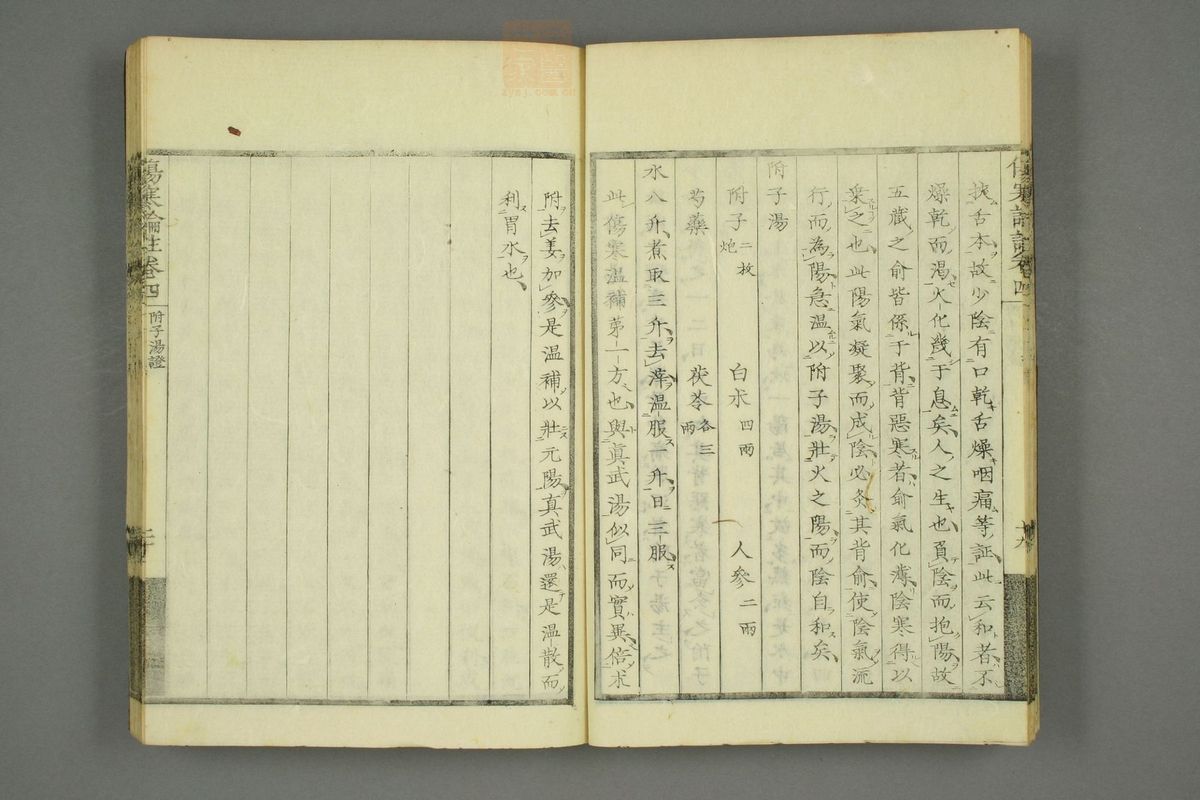 挾舌本故少陰有口乾舌燥咽痛等証此云和者不
燥乾而渴火化幾于息矣人之生也負陰而抱陽故
五藏之俞皆係于背背惡寒者俞氣化薄陰寒得以
乘之也此陽氣凝聚而成陰必灸其背俞使陰氣流
行而為陽急溫以附子湯壯火之陽而陰自和矣
附子湯
附子 二枚 炮 白朮 四兩 人參 二兩
芍藥 茯苓 各三兩
水八升煮取三升去滓溫服一升日三服
此傷寒溫補第一方也與真武湯似同而實異倍朮
附去姜加參是溫補以壯元陽真武湯還是溫散而
利胃水也
傷寒論註 卷四 附子湯證
二十